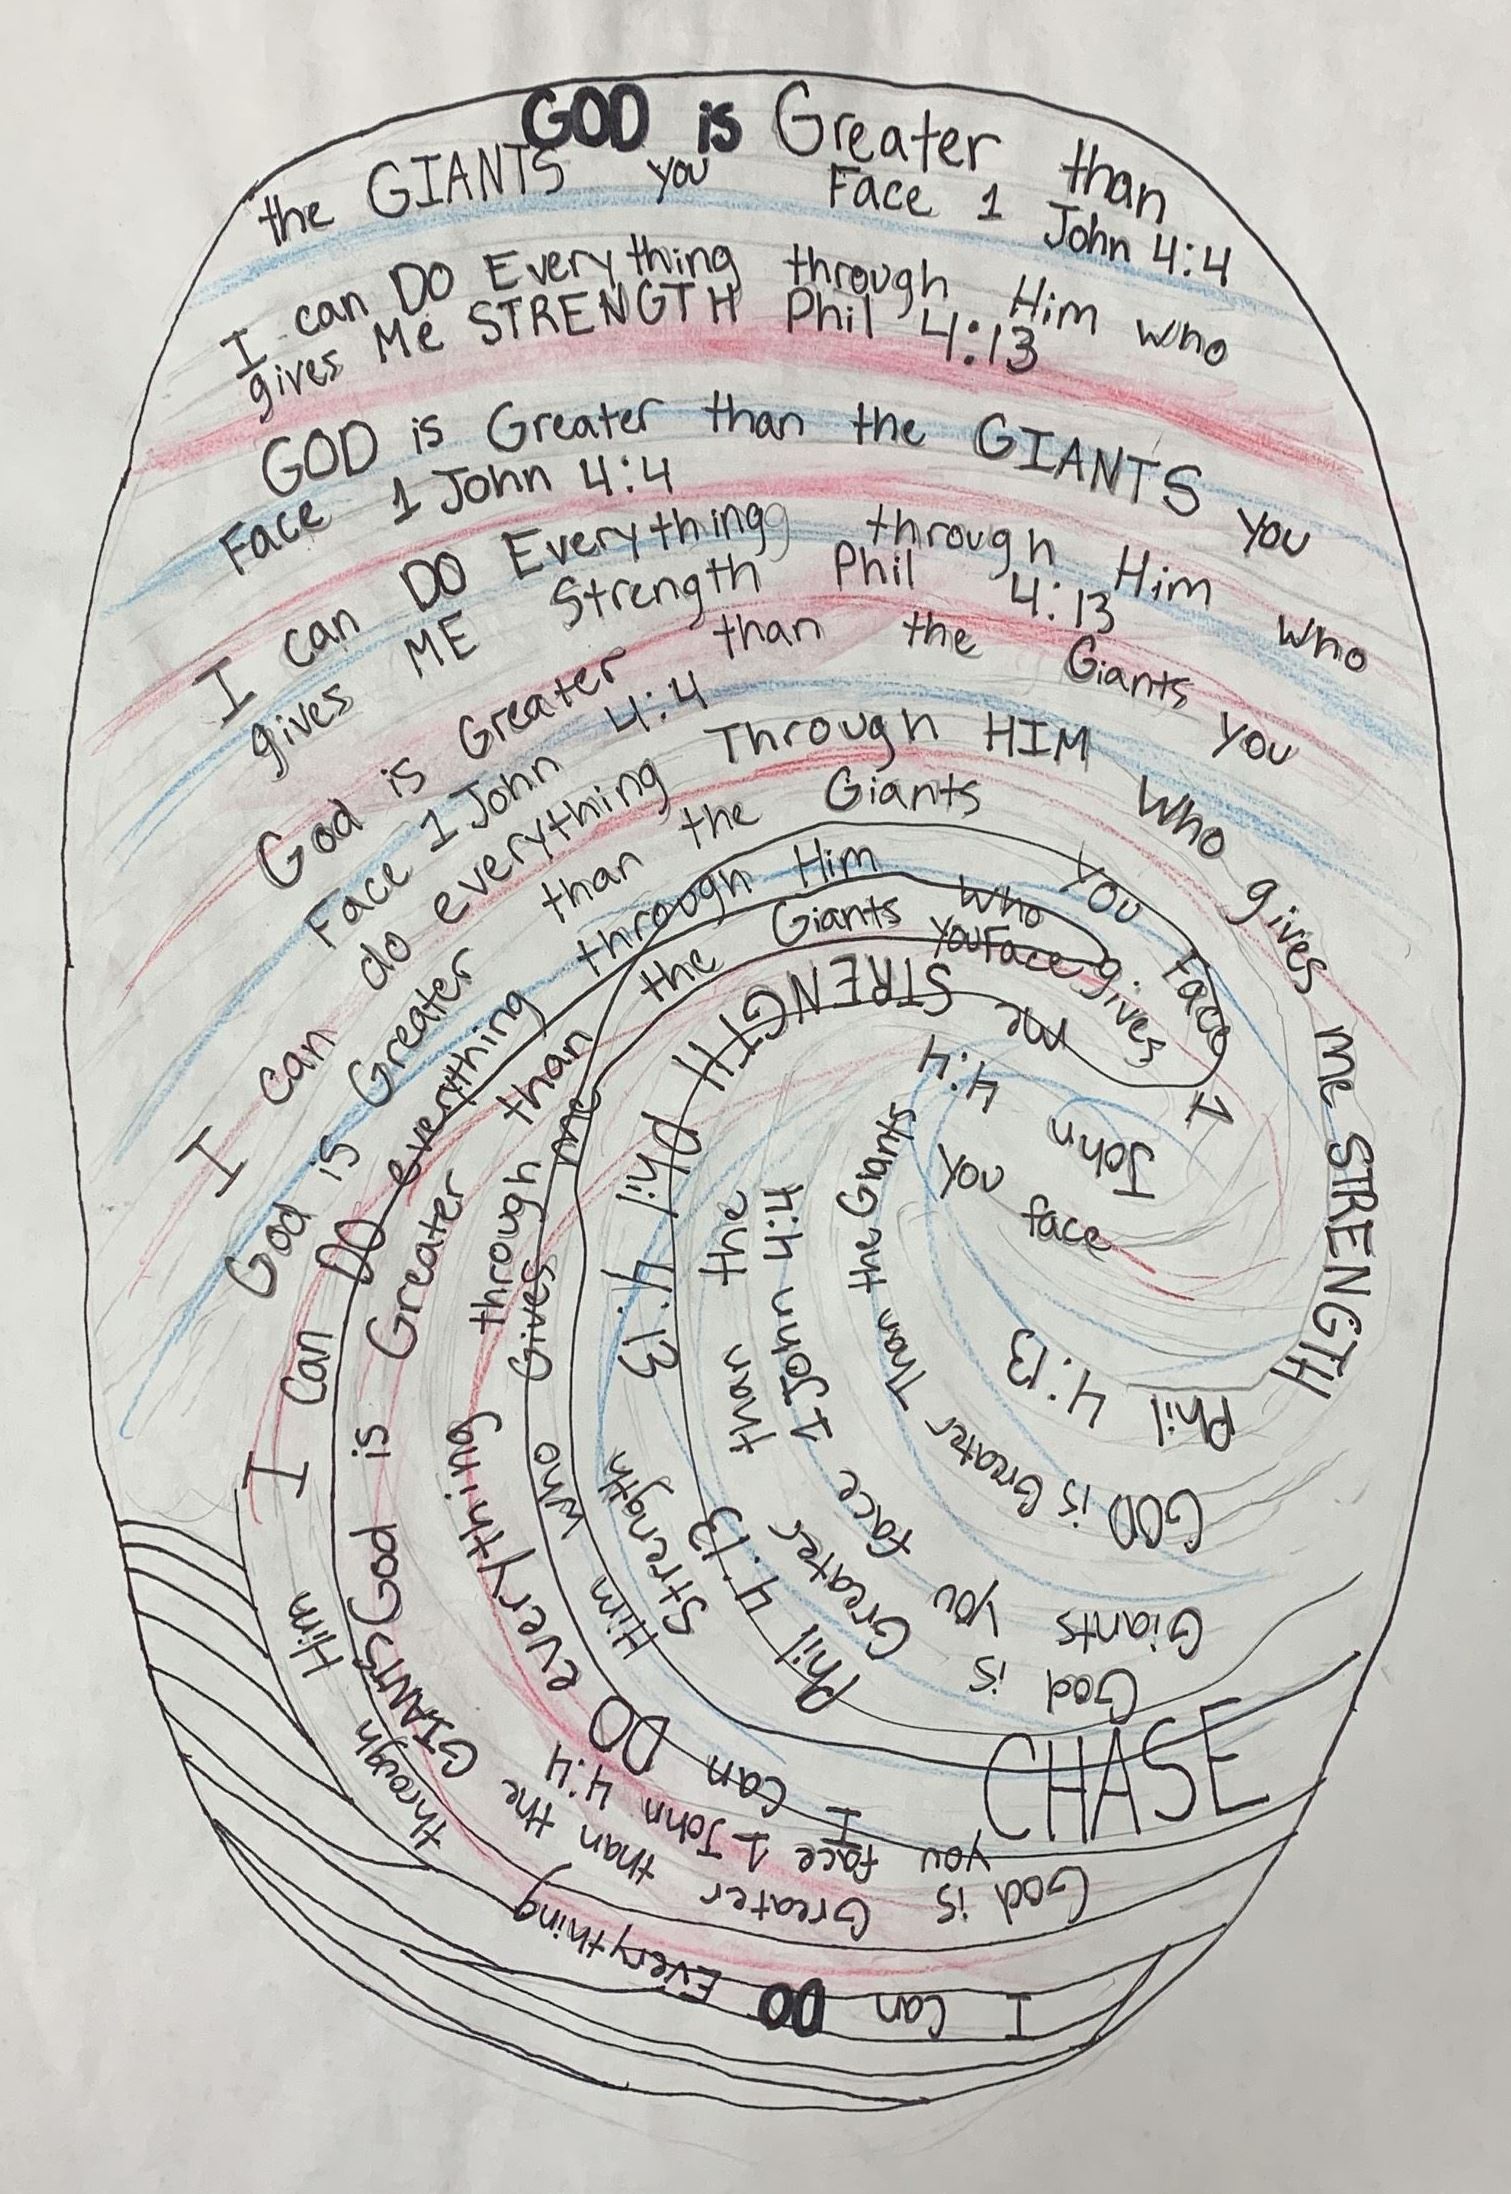 GOD is Greater than
the GIANTS you Face 1 John 4:4
I can DO Everything through Him who
gives Me STRENGTH Phil 4:13
GOD is Greater than the GIANTS you
Face 1 John 4:4
I can DO Everything through Him who
gives ME Strength Phil 4:13
God is Greater than the Giants you
Face 1 John 4:4
I can do everything Through HIM Who gives me STRENGTH
Phil 4:13
God is Greater than the Giants you Face 1
John 4:4
I can DO everything through Him who gives me
STRENGTH Phil 4:13
God is Greater than the Giants you Face
I can DO Everything through Him
God is Greater than the GIANTS
you face 1 John 4:4
I can DO everything through
Him who Gives me
Strength
Phil 4:13
God is Greater than the
Giants you face 1 John 4:4
GOD is Greater Than the Giants
you face
CHASE